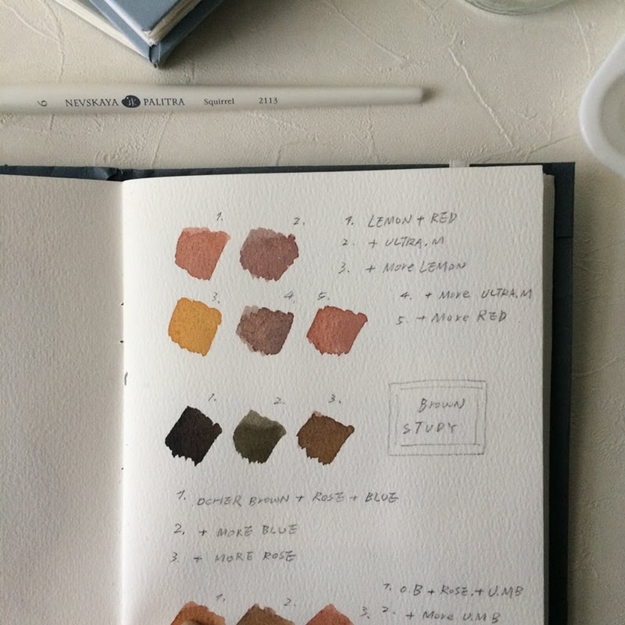 6 NEVSKAYA PALITRA Squirrel 2113
1. 2.
1. LEMON + RED
2. + ULTRA.M
3. + MORE LEMON
3. 4. 5.
4. + MORE ULTRA.M
5. + MORE RED
BROWN
STUDY
1. 2. 3.
1. OCHER BROWN + ROSE + BLUE
2. + MORE BLUE
3. + MORE ROSE
1. O.B + ROSE. + U.MB
2. + MORE U.MB
1. 2. 3.